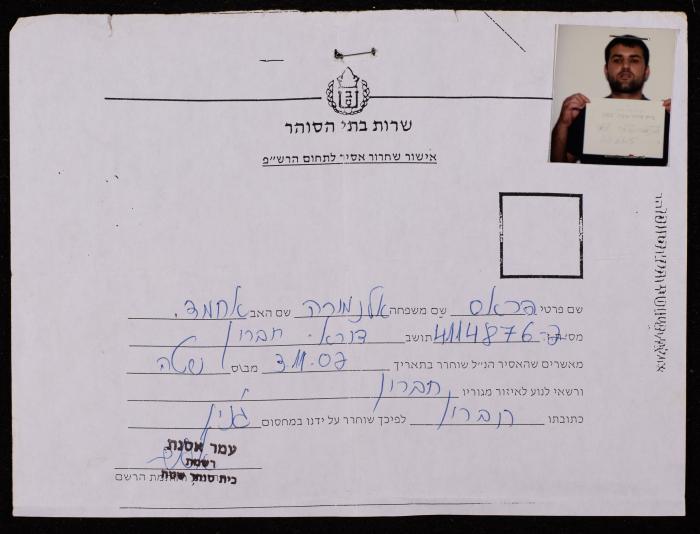 שרות בתי הסוהר
אישור שחרור אסיר לתחום הרש״פ
שם פרטי פראס שם משפחה אלנמורה שם האב אחמד
מס׳ 4114876 תושב דורא. חברון
מאשרים שהאסיר הנ״ל שוחרר בתאריך 3.11.07 מב״ס שטה
ורשאי לנוע לאיזור מגוריו חברון
כתובתו חברון לפיכך שוחרר על ידנו במחסום ג׳נין
עמר אסנת
רשמת
בית סוהר שטה
חתימת הרשם